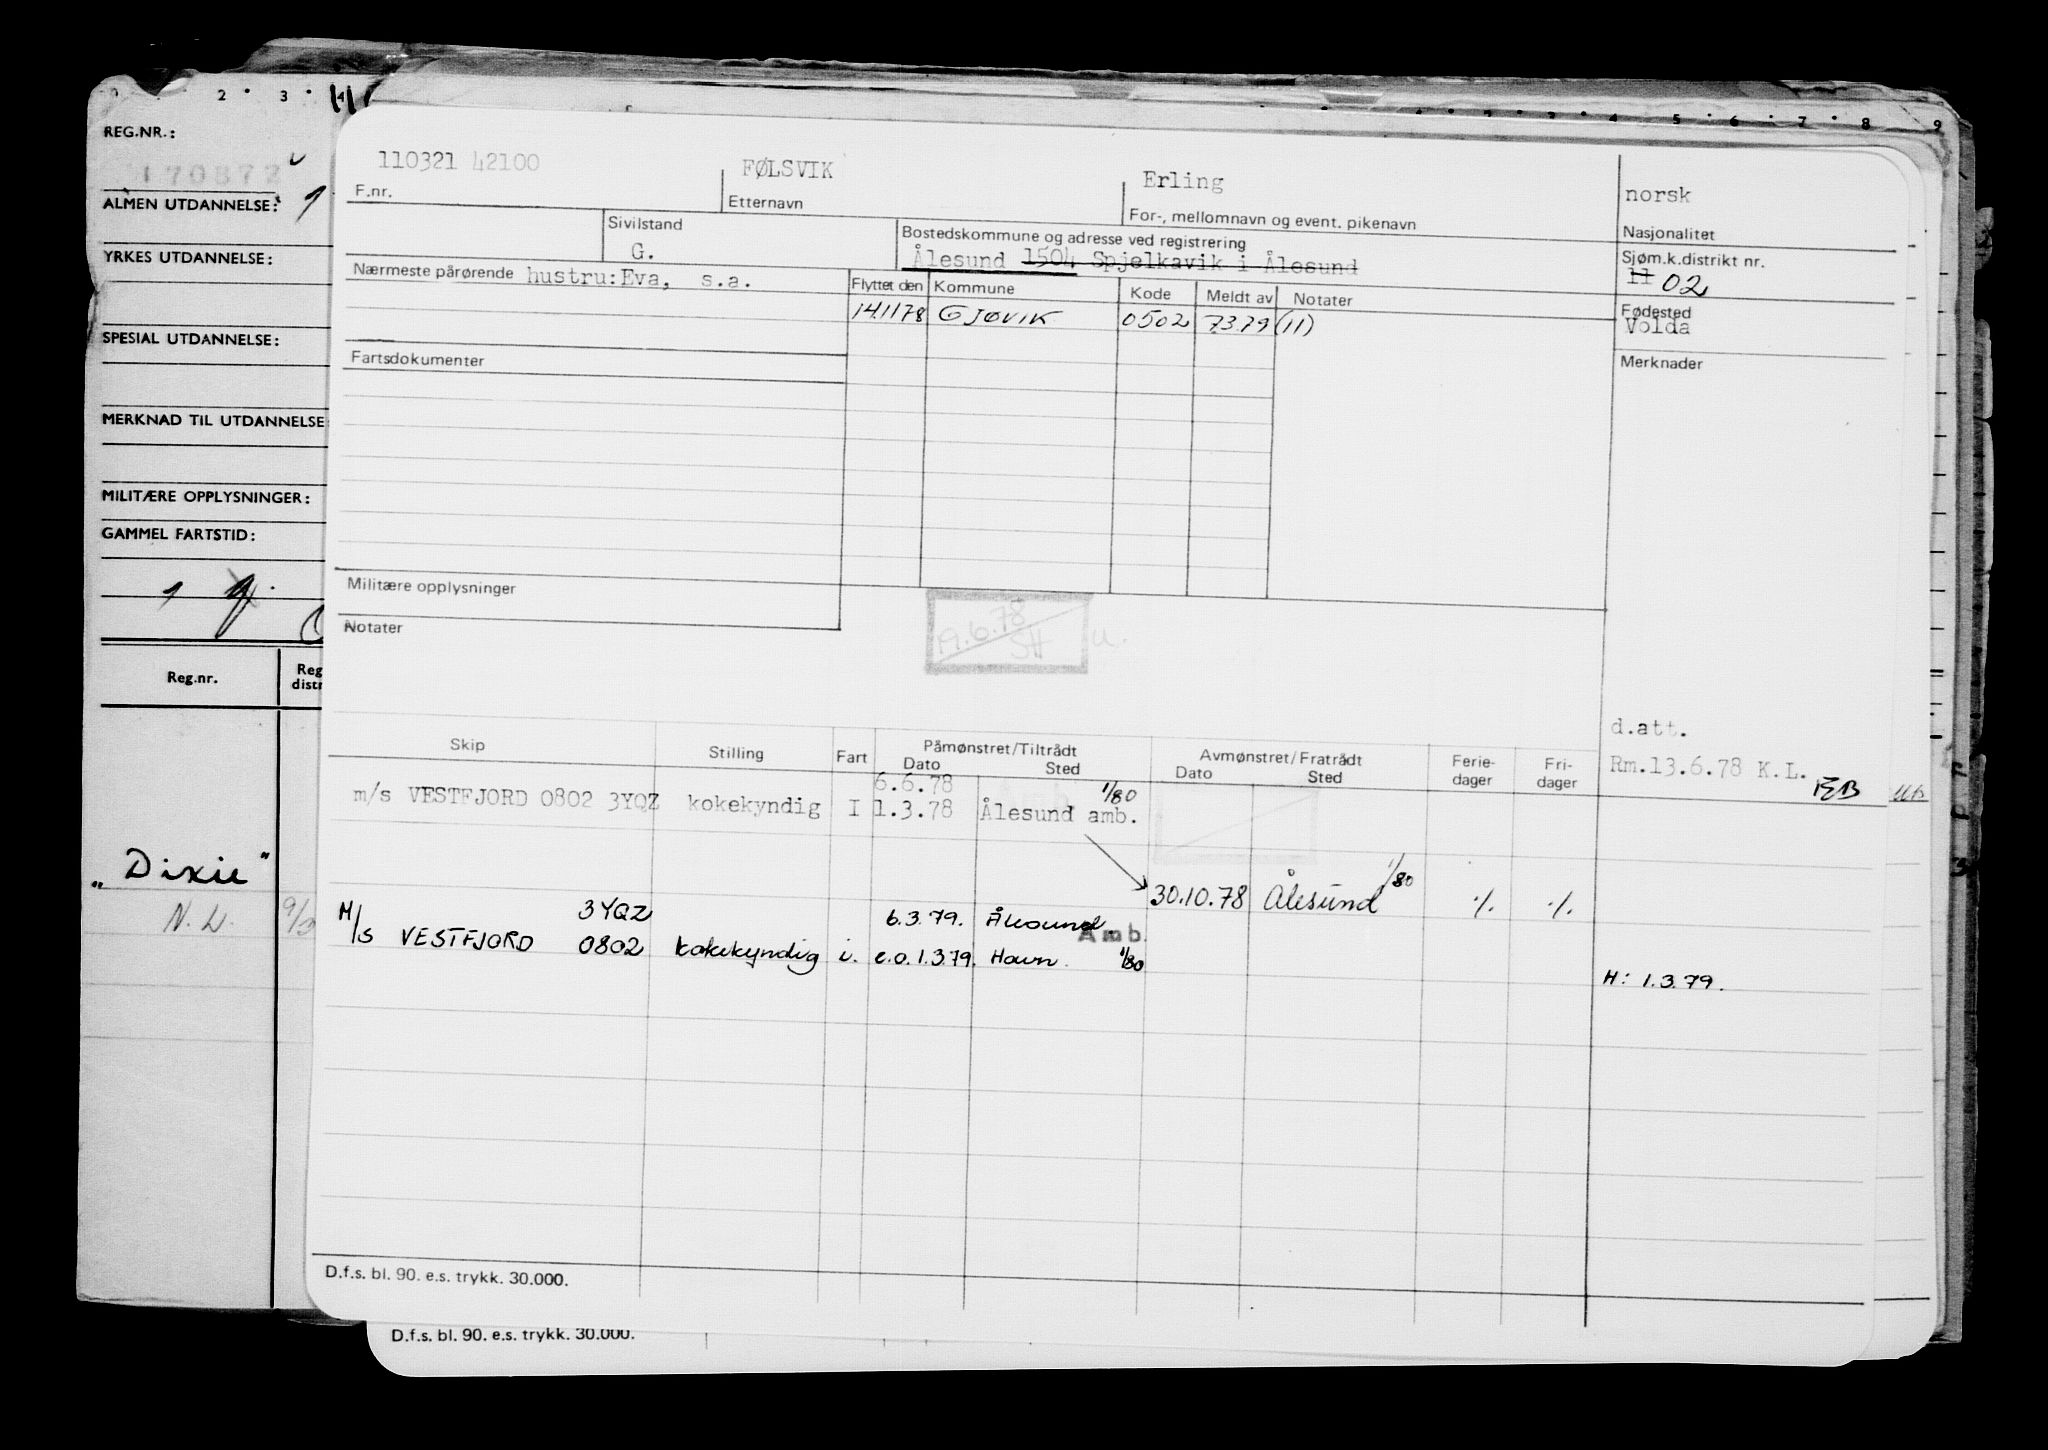 2 3 4
5 6 7 8 9
REG.NR.:
170872
ALMEN UTDANNELSE:
YRKES UTDANNELSE:
SPESIAL UTDANNELSE:
MERKNAD TIL UTDANNELSE:
MILITÆRE OPPLYSNINGER:
GAMMEL FARTSTID:
Reg.nr.
Reg
distr
"Dixie"
110321 42100
F.nr.
FØLSVIK
Etternavn
Erling
For-, mellomnavn og event. pikenavn
norsk
Nasjonalitet
Sivilstand
G.
Bostedskommune og adresse ved registrering
Ålesund 1504 Spjelkavik i Ålesund
Sjøm.k.distrikt nr.
11 02
Nærmeste pårørende hustru:Eva, s.a.
Flyttet den Kommune Kode Meldt av Notater
141178 GJØVIK 0502 7379 (11)
Fødested
Volda
Fartsdokumenter
Merknader
Militære opplysninger
Notater
19.6.78
SH u.
d.att.
Skip Stilling Fart Påmønstret/Tiltrådt Avmønstret/Fratrådt Ferie- Fri-
Dato Sted Dato Sted dager dager
Rm.13.6.78 K.L.
EB
6.6.78 1/80
m/s VESTFJORD 0802 3YQZ kokekyndig I 1.3.78 Ålesund amb.
30.10.78 Ålesund 1/80 ./. ./.
3YQZ 6.3.79. Ålesund
Amb.
M/S VESTFJORD 0802 kokekyndig i. e.o.1.3.79. Havn 1/80
H: 1.3.79.
D.f.s. bl. 90. e.s. trykk. 30.000.
D.f.s. bl. 90. e.s. trykk. 30.000.